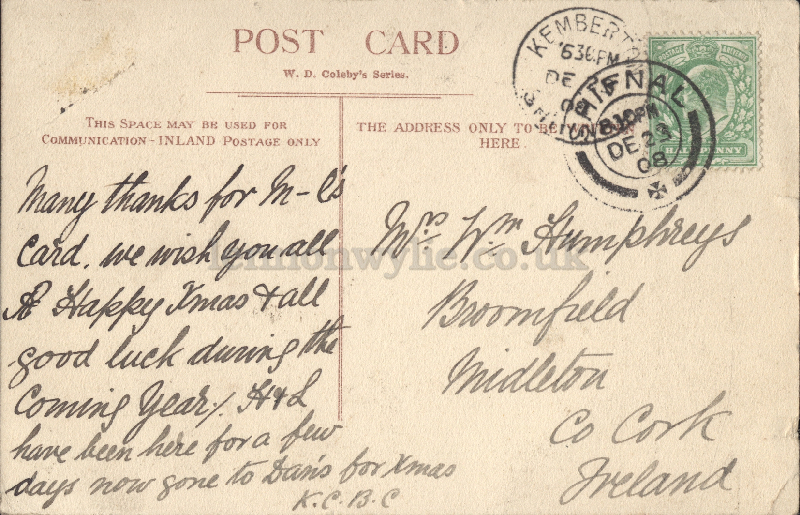 POST CARD
W. D. Coleby's Series.
THIS SPACE MAY BE USED FOR
COMMUNICATION-INLAND POSTAGE ONLY
THE ADDRESS ONLY TO BE
HERE.
KEMBERTON
636PM
DE 23
08
SHIFNAL
8.10PM
DE 23
08
POSTAGE
HALFPENNY
Many thanks for M-L's
Card. we wish you all
A Happy Xmas & all
good luck during the
Coming Year/. H&L
have been here for a few
days now gone to Dan's for Xmas
K.C.B.C
Mrs Wm Humphreys
Broomfield
Midleton
Co Cork
Ireland
lennonwylie.co.uk